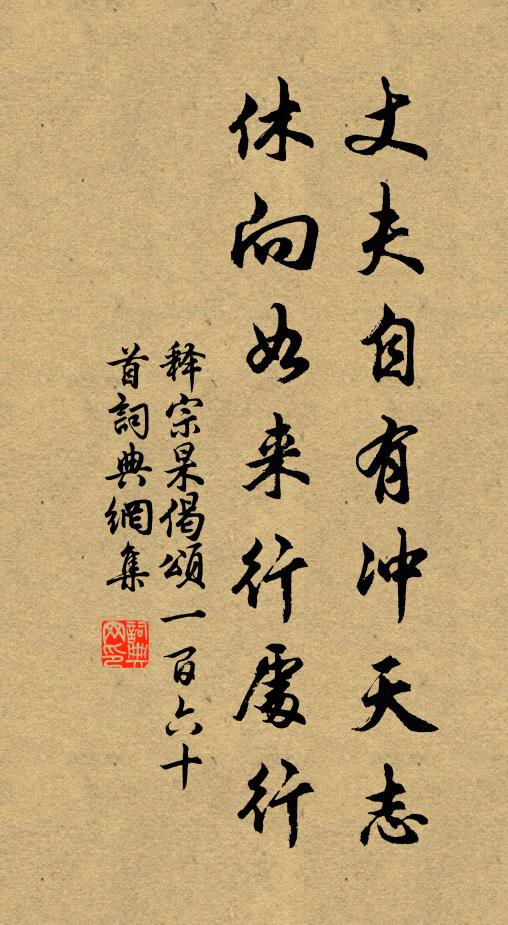 丈夫自有冲天志
休向如来行處行
释宗杲偈頌一百六十
首詞典網集
詞典
网印